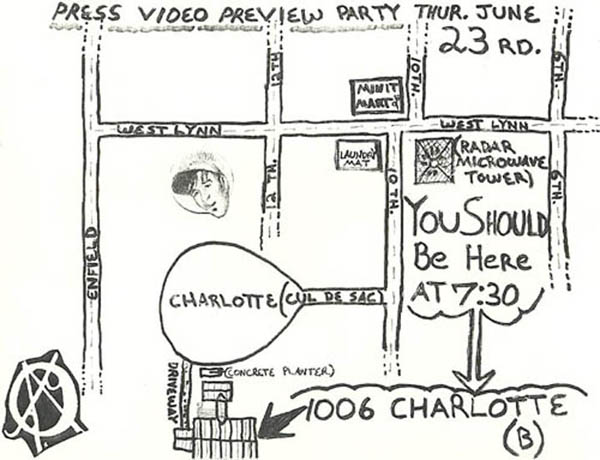 PRESS VIDEO PREVIEW PARTY THUR. JUNE
23 RD.
12TH
10TH.
6TH.
MINIT
MART'S
WEST LYNN
WEST LYNN
LAUNDRY
MAT
(RADAR
MICROWAVE
TOWER)
12 TH.
10TH.
6TH.
ENFIELD
YOU SHOULD
Be Here
AT 7:30
CHARLOTTE (CUL DE SAC)
DRIVEWAY
(CONCRETE PLANTER)
1006 CHARLOTTE
(B)